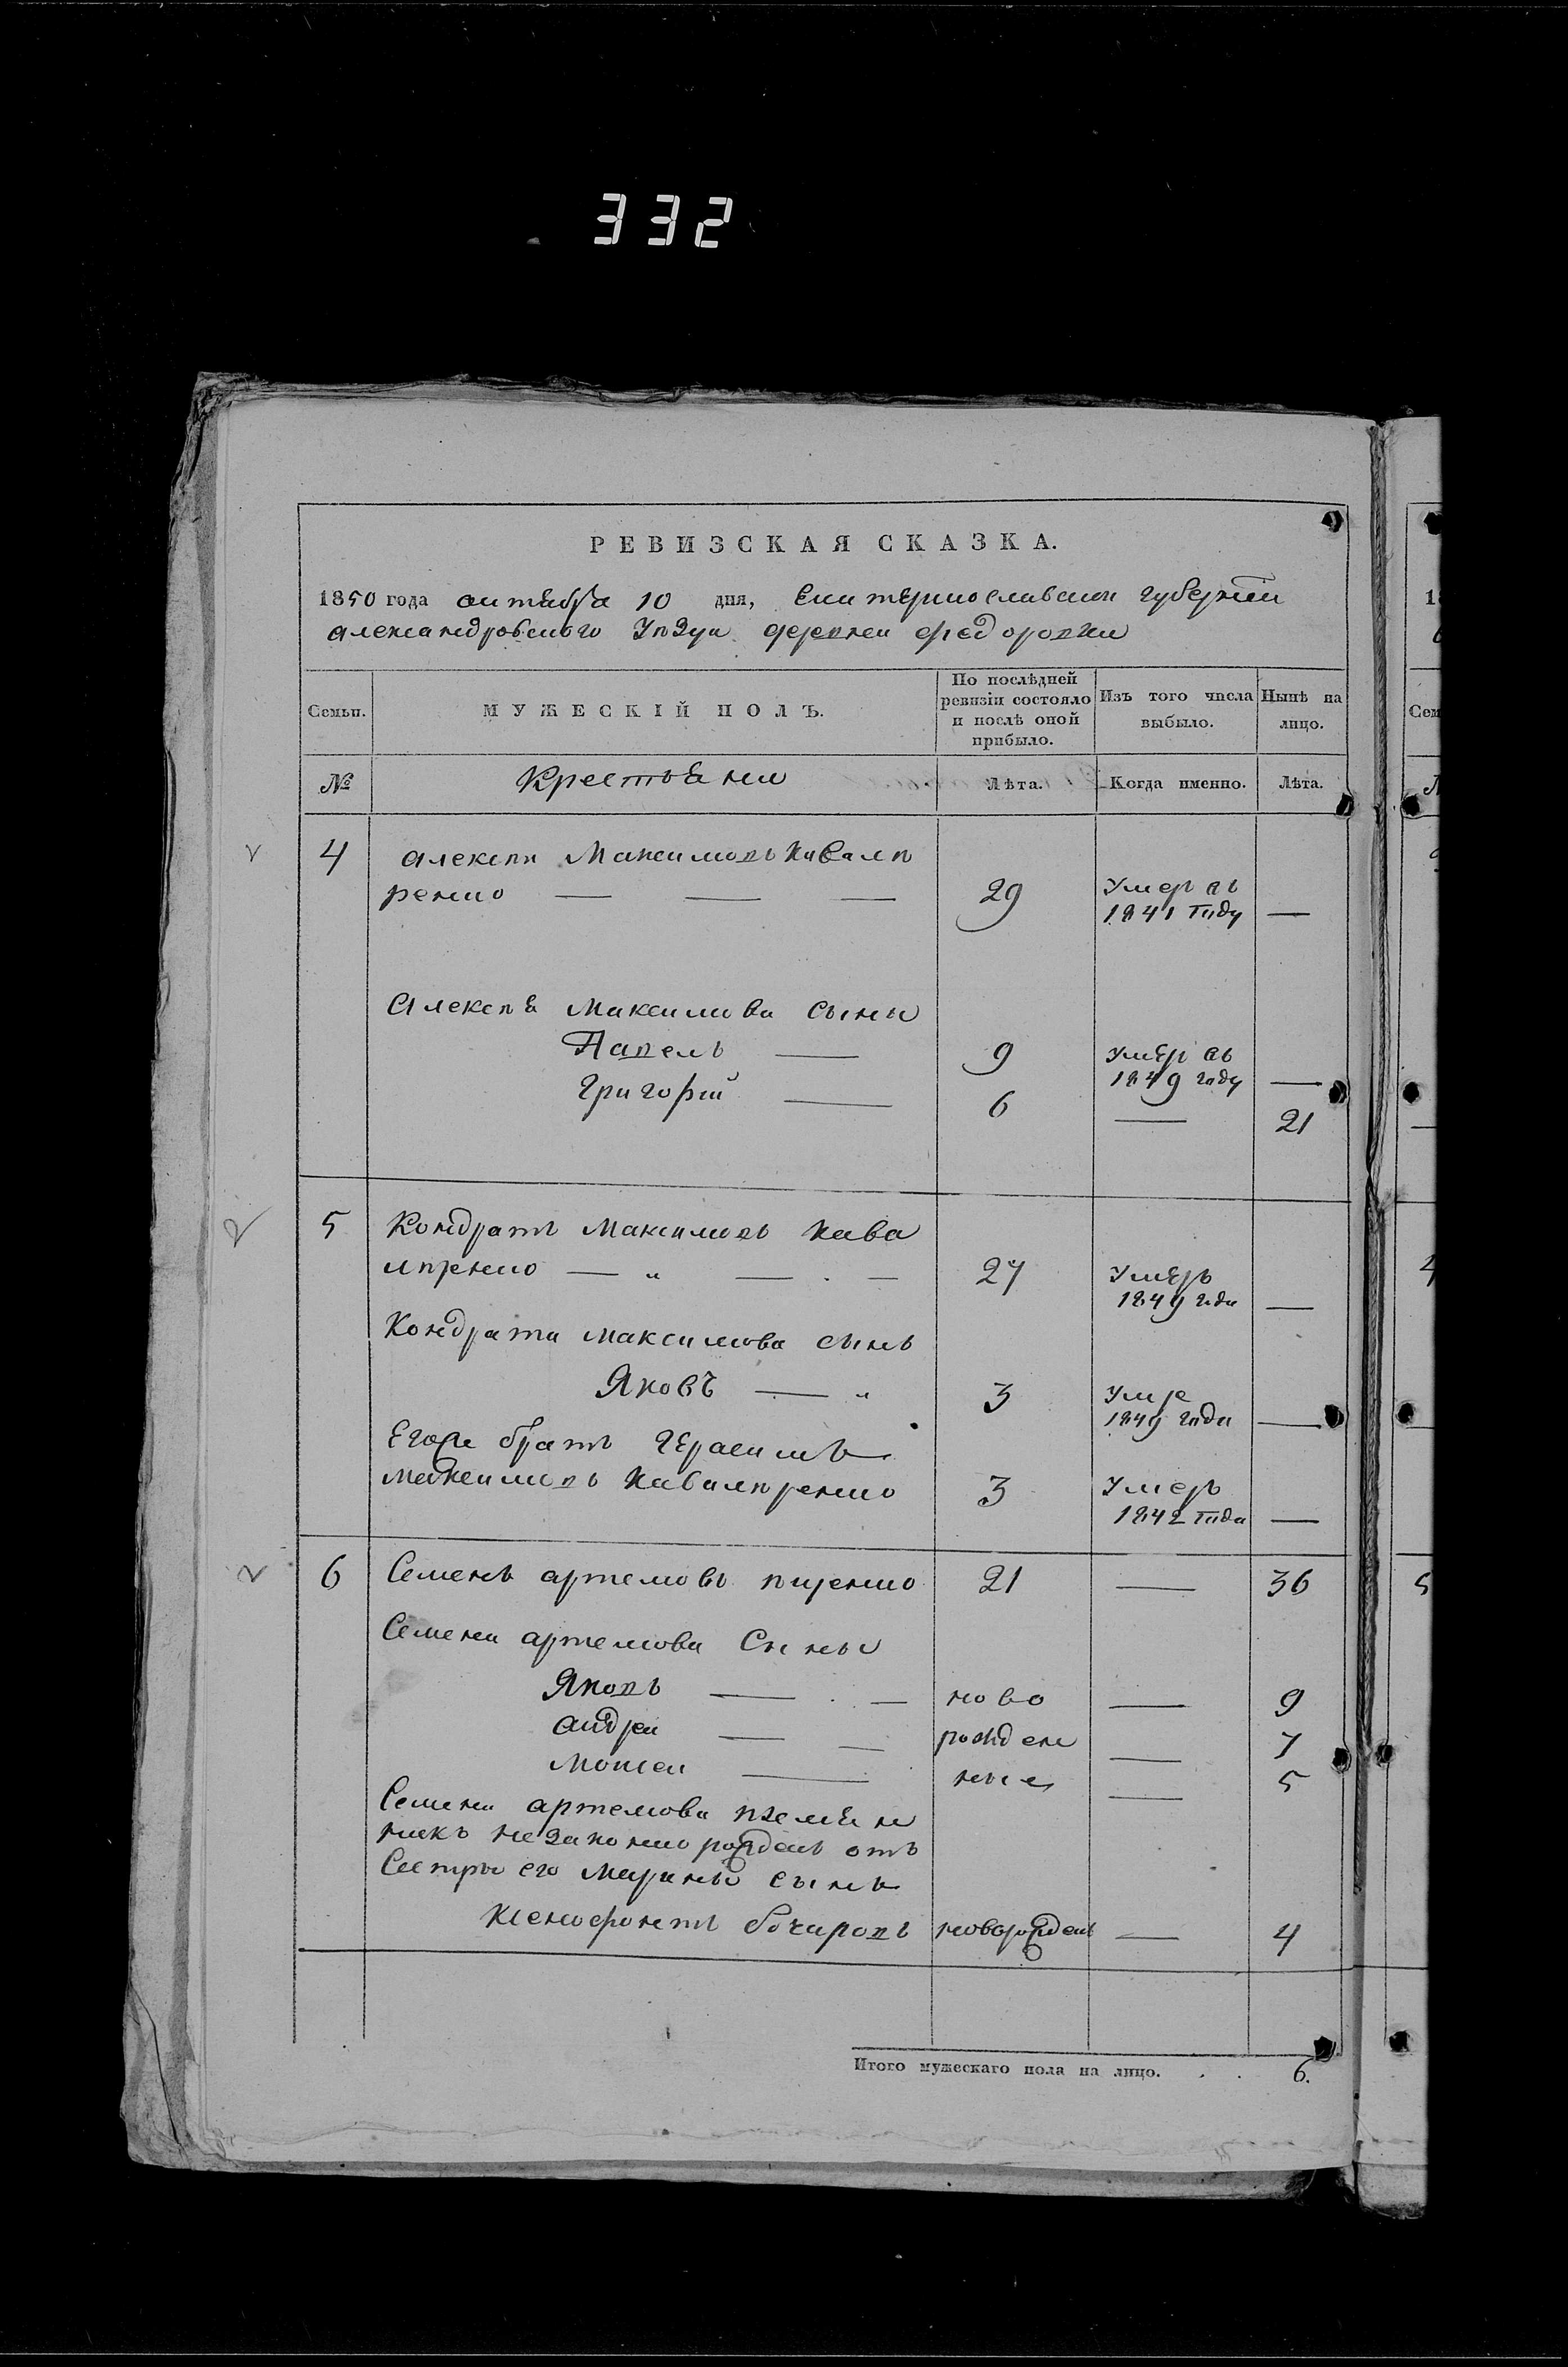 332
РЕВИЗСКАЯ СКАЗКА.
1850 года октября 10 дня, Екатеринославской губернии
александровского Уѣзда деревни федоровки
Семьи.
МУЖЕСКІЙ ПОЛЪ.
По послѣдней ревизіи состояло и послѣ оной прибыло.
Изъ того числа выбыло.
Нынѣ на лицо.
№
Крестьяни
Лѣта.
Когда именно.
Лѣта.
4 алексѣй Максимовъ Кавалѣ
ренко 29 Умеръ въ —
1841 году
Алексѣя Максимова сыны
Павелъ 9 умеръ въ
1849 году —
Григорий 6 — 21
5 Кондратъ Максимовъ Кава
лѣренко — " — 27 Умеръ
1849 года —
Кондрата Максимова сынъ
Яковъ — " 3 Умре
1849 года —
Егоръ братъ Герасимъ
максимовъ Кавалѣренко 3 Умеръ
1842 года —
6 Семенъ артемовъ 21 — 36
Семена артемова Сыны
Яковъ — ново — 9
андреи — рожден — 7
Моисеи — ные — 5
Семена артемова племян
никъ незаконно рожденъ отъ
Сестры его Марины сынъ
Ксенофонтъ бочаровъ новорожденъ — 4
Итого мужескаго пола на лицо. . . 6.